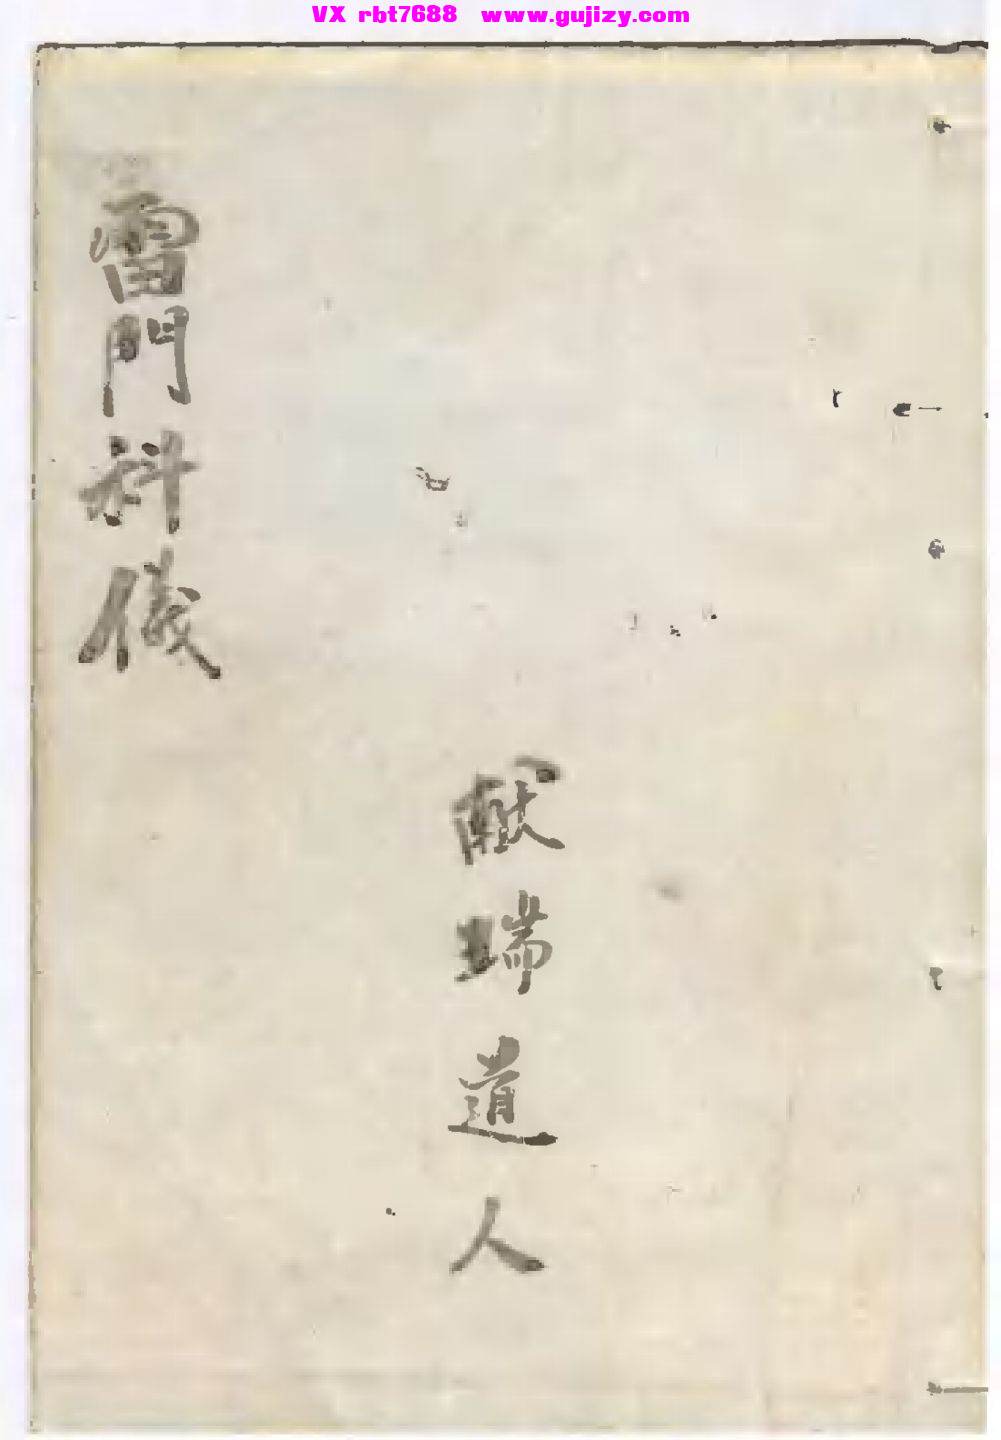 VX rbt7688 www.gujizy.com
雷門科儀
献瑞道人